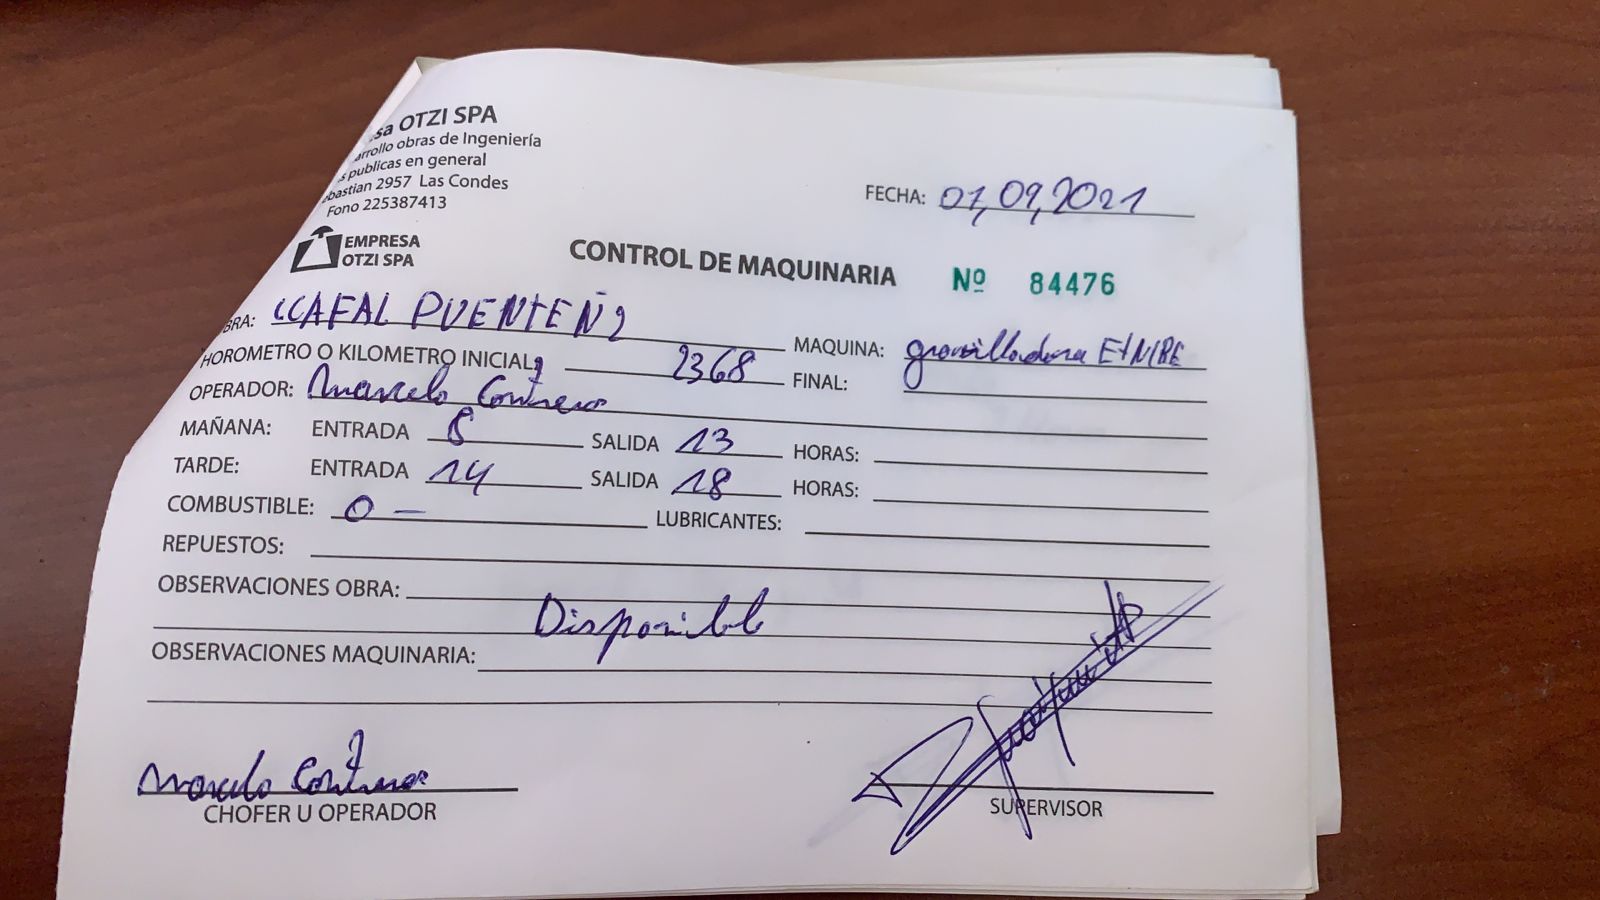 sa OTZI SPA
arrollo obras de Ingeniería
s publicas en general
ebastian 2957 Las Condes
Fono 225387413
EMPRESA
OTZI SPA
FECHA: 01,09,2021
CONTROL DE MAQUINARIA Nº 84476
BRA: CCAFAL PUENTE Ñ 2
MAQUINA: gravilladora ETNIRE
HOROMETRO O KILOMETRO INICIAL: 2368 FINAL:
OPERADOR: Marcelo Contreras
MAÑANA: ENTRADA 8 SALIDA 13 HORAS:
TARDE: ENTRADA 14 SALIDA 18 HORAS:
COMBUSTIBLE: 0 — LUBRICANTES:
REPUESTOS:
OBSERVACIONES OBRA:
Disponible
OBSERVACIONES MAQUINARIA:
Marcelo Contreras
CHOFER U OPERADOR
SUPERVISOR